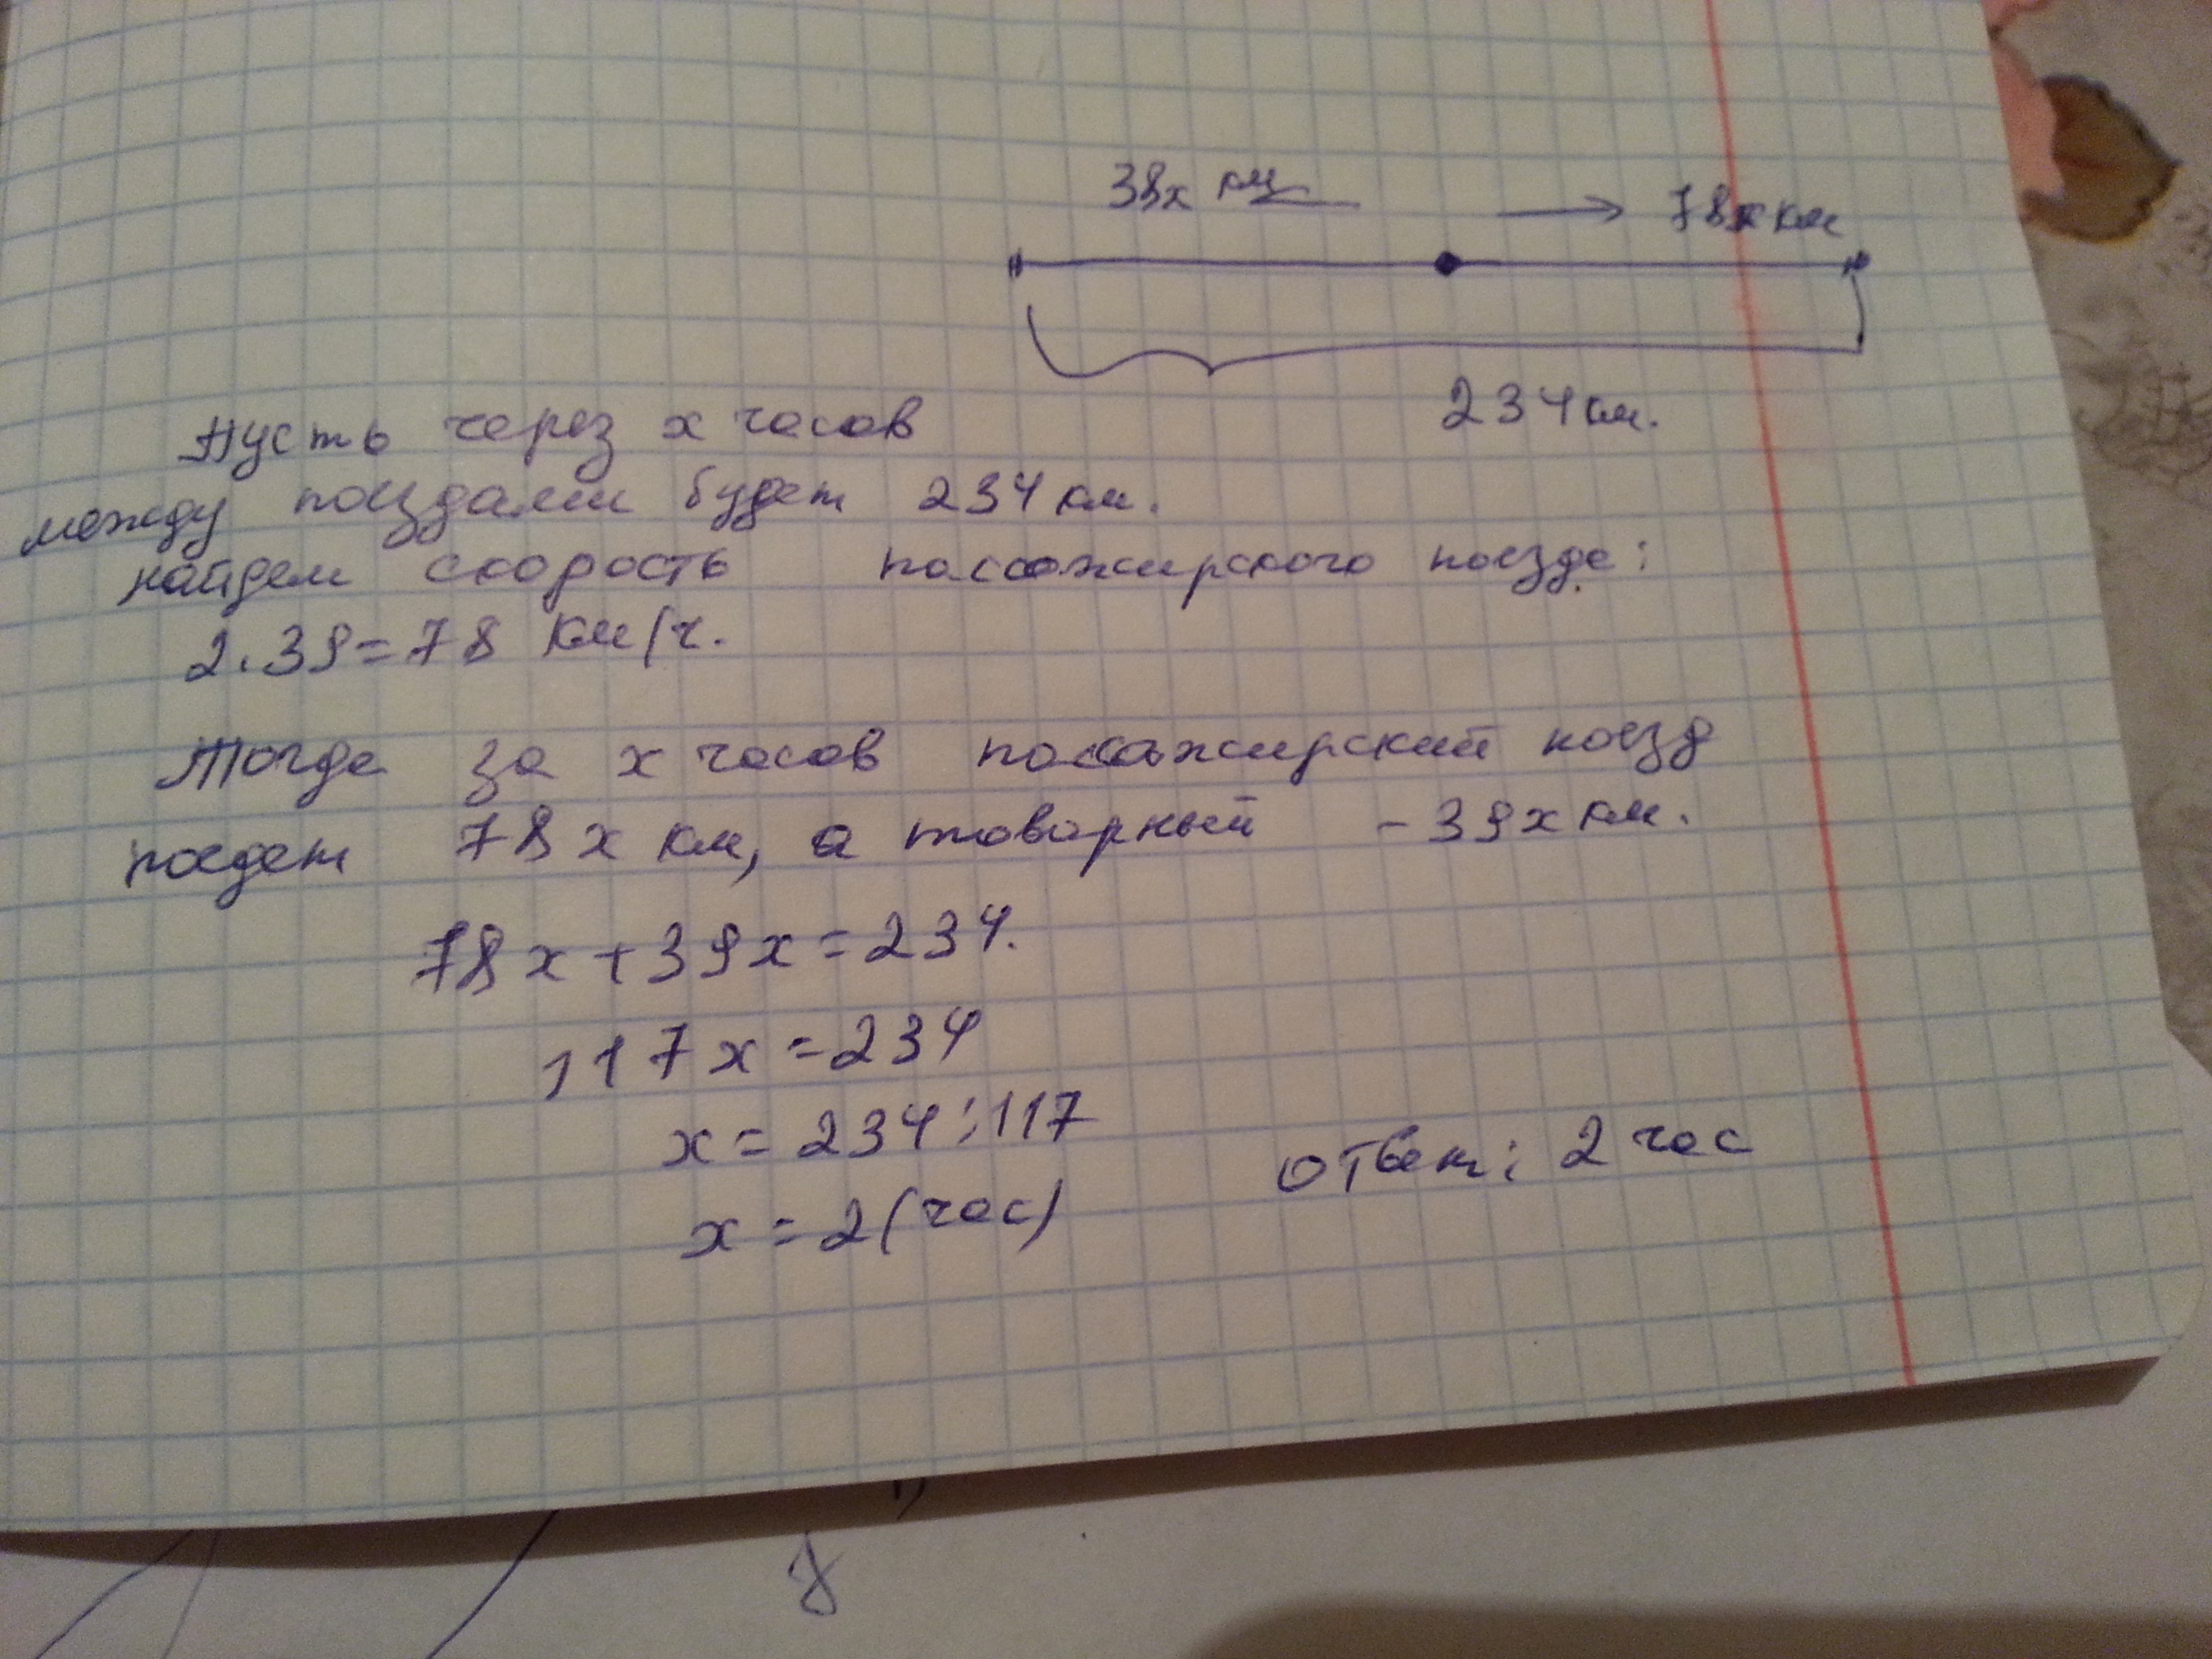 39х км
78х км
234 км.
Пусть через х часов
между поездами будет 234 км.
найдем скорость пассажирского поезда:
2.39=78 км/ч.
Тогда за х часов пассажирский поезд
поедет 78х км, а товарный - 39х км.
78х+39х=234.
117х=234
х=234:117
х=2(час)
Ответ: 2 час